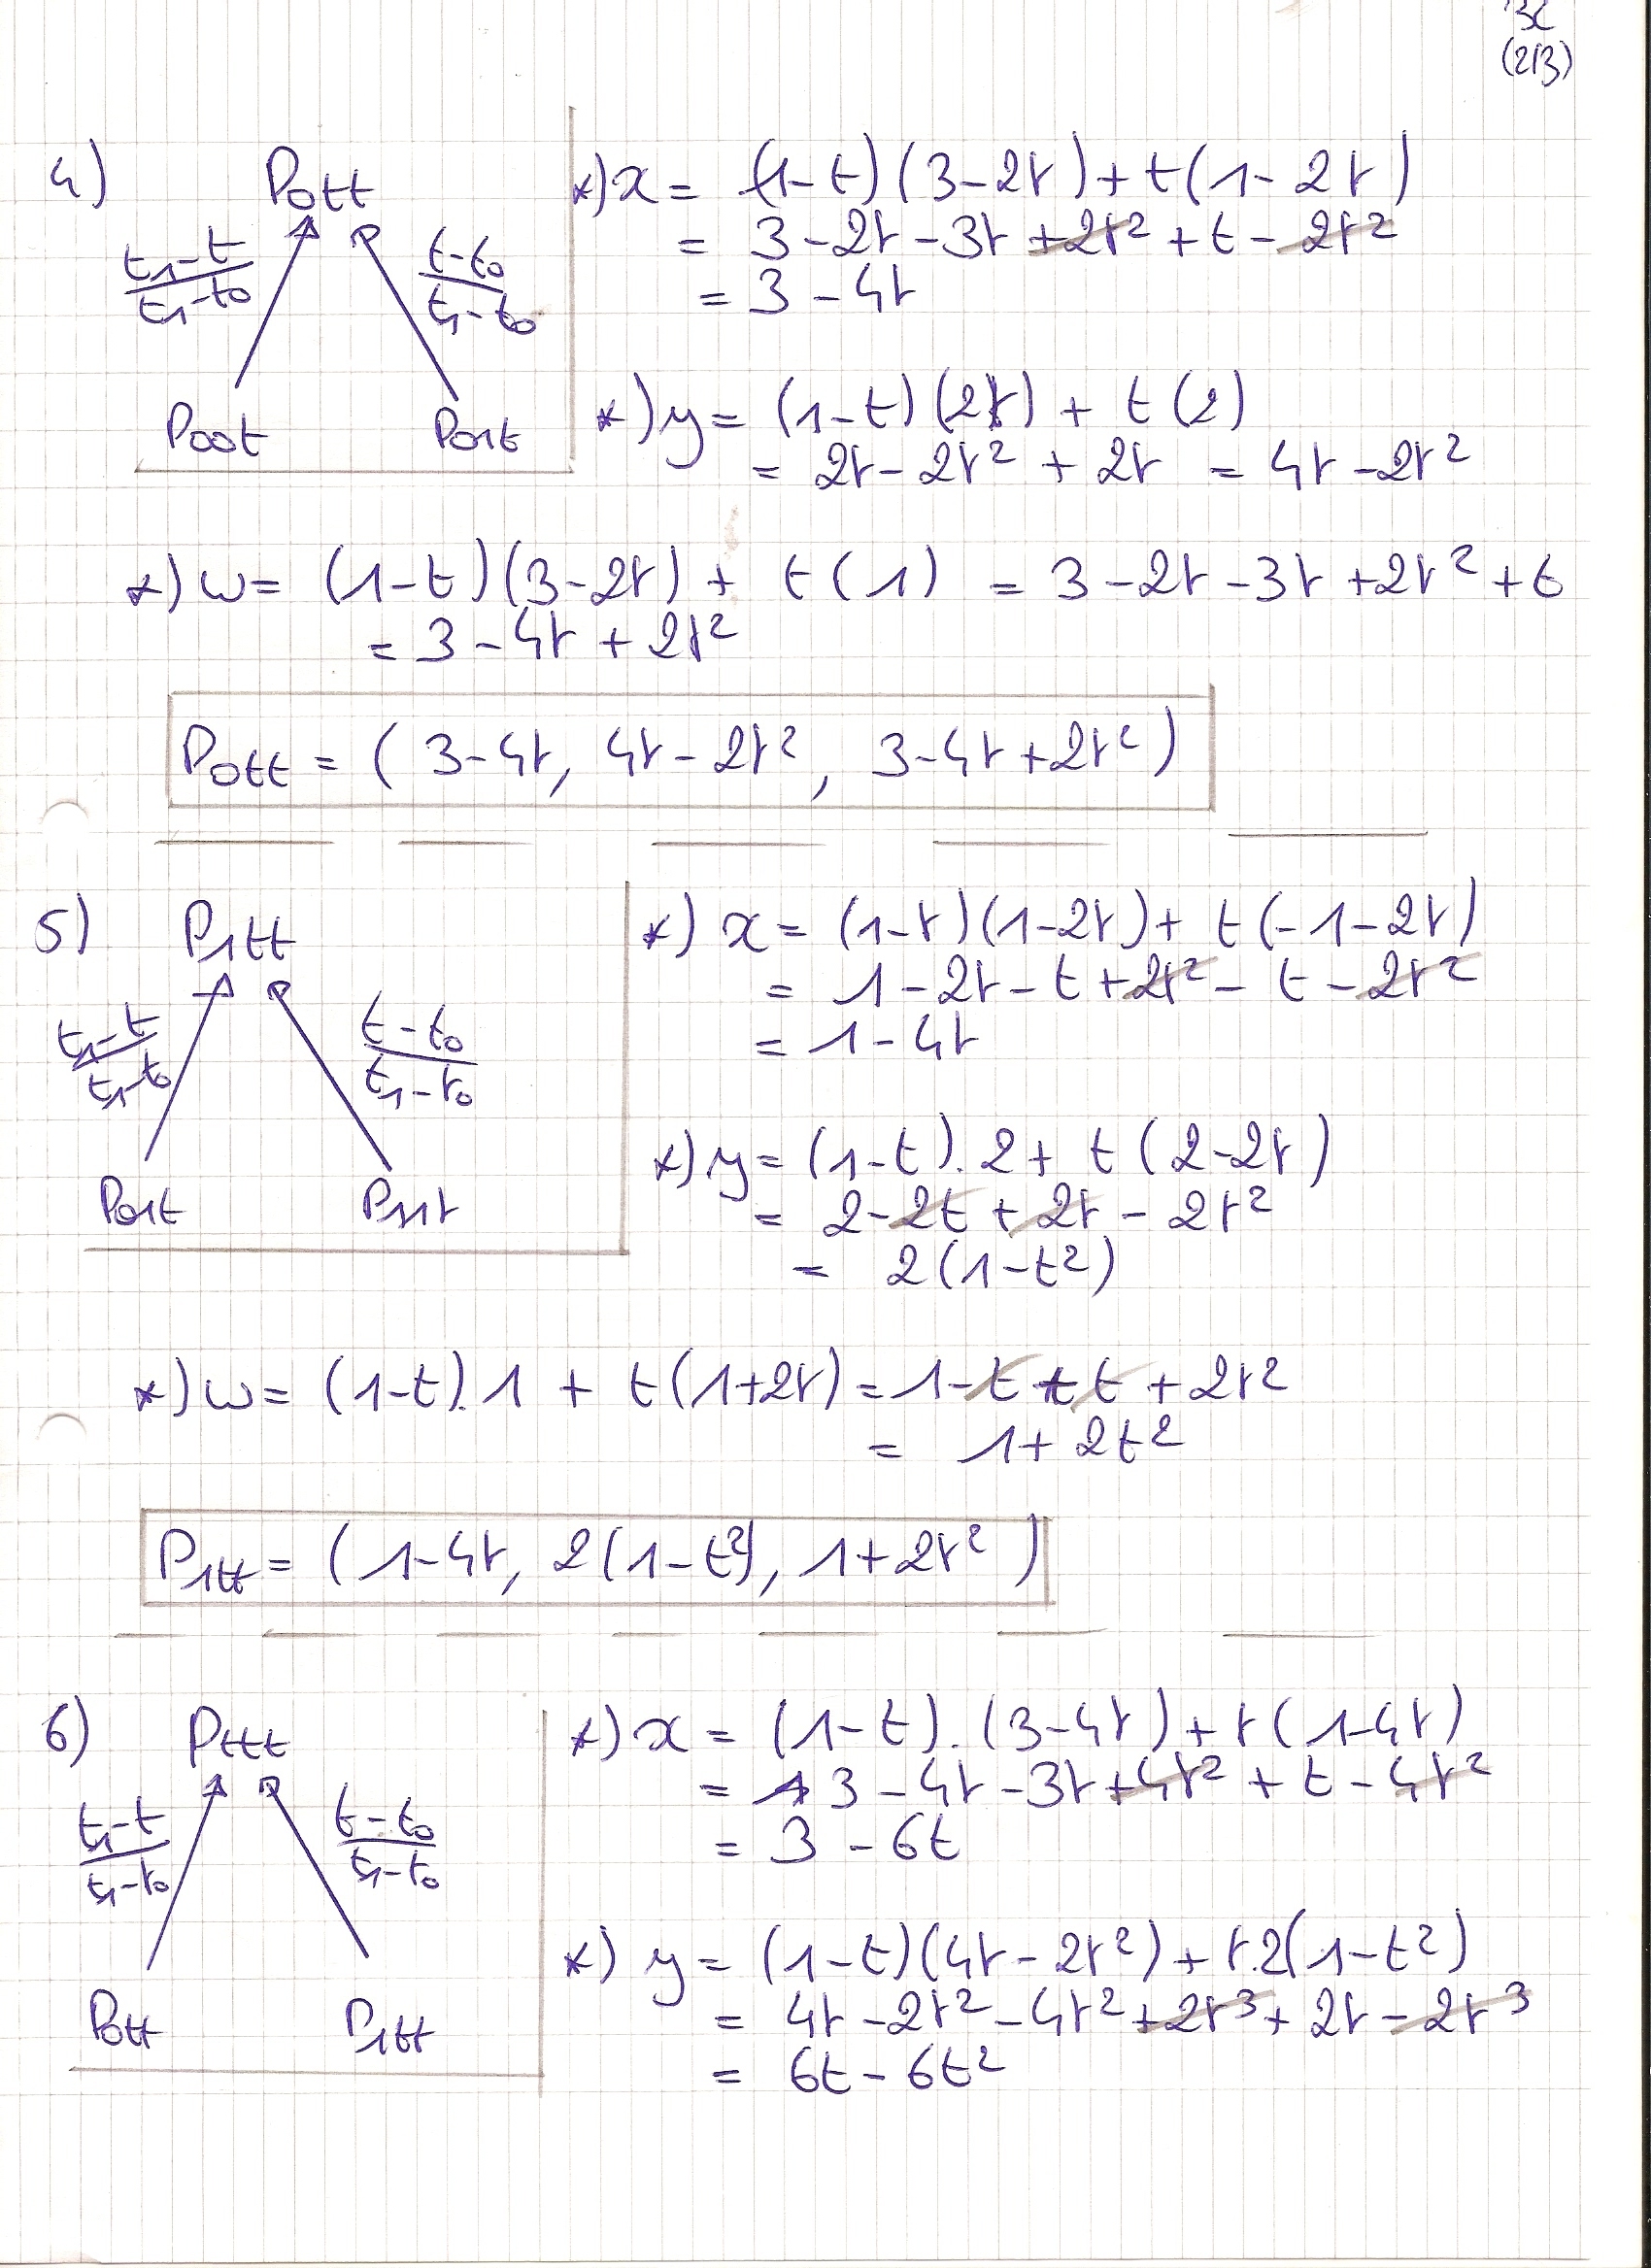 (2/3)
4) P₀tt
t₁-t / t₁-t₀
t-t₀ / t₁-t₀
P₀₀t P₀₁t
*) x = (1-t)(3-2t)+t(1-2t)
= 3-2t-3t+2t²+t-2t²
= 3-4t
*) y = (1-t)(2t) + t(2)
= 2t-2t² + 2t = 4t-2t²
*) w = (1-t)(3-2t) + t(1) = 3-2t-3t+2t²+t
= 3-4t+2t²
P₀tt = (3-4t, 4t-2t², 3-4t+2t²)
5) P₁tt
t₁-t / t₁-t₀
t-t₀ / t₁-t₀
P₀₁t P₁₁t
*) x = (1-t)(1-2t)+ t(-1-2t)
= 1-2t-t+2t²-t-2t²
= 1-4t
*) y = (1-t).2+ t(2-2t)
= 2-2t+2t-2t²
= 2(1-t²)
*) w = (1-t).1 + t(1+2t) = 1-t+t+2t²
= 1+2t²
P₁tt = (1-4t, 2(1-t²), 1+2t²)
6) Pttt
t₁-t / t₁-t₀
t-t₀ / t₁-t₀
P₀tt P₁tt
*) x = (1-t).(3-4t)+t(1-4t)
= 3-4t-3t+4t²+t-4t²
= 3-6t
*) y = (1-t)(4t-2t²)+t.2(1-t²)
= 4t-2t²-4t²+2t³+2t-2t³
= 6t-6t²